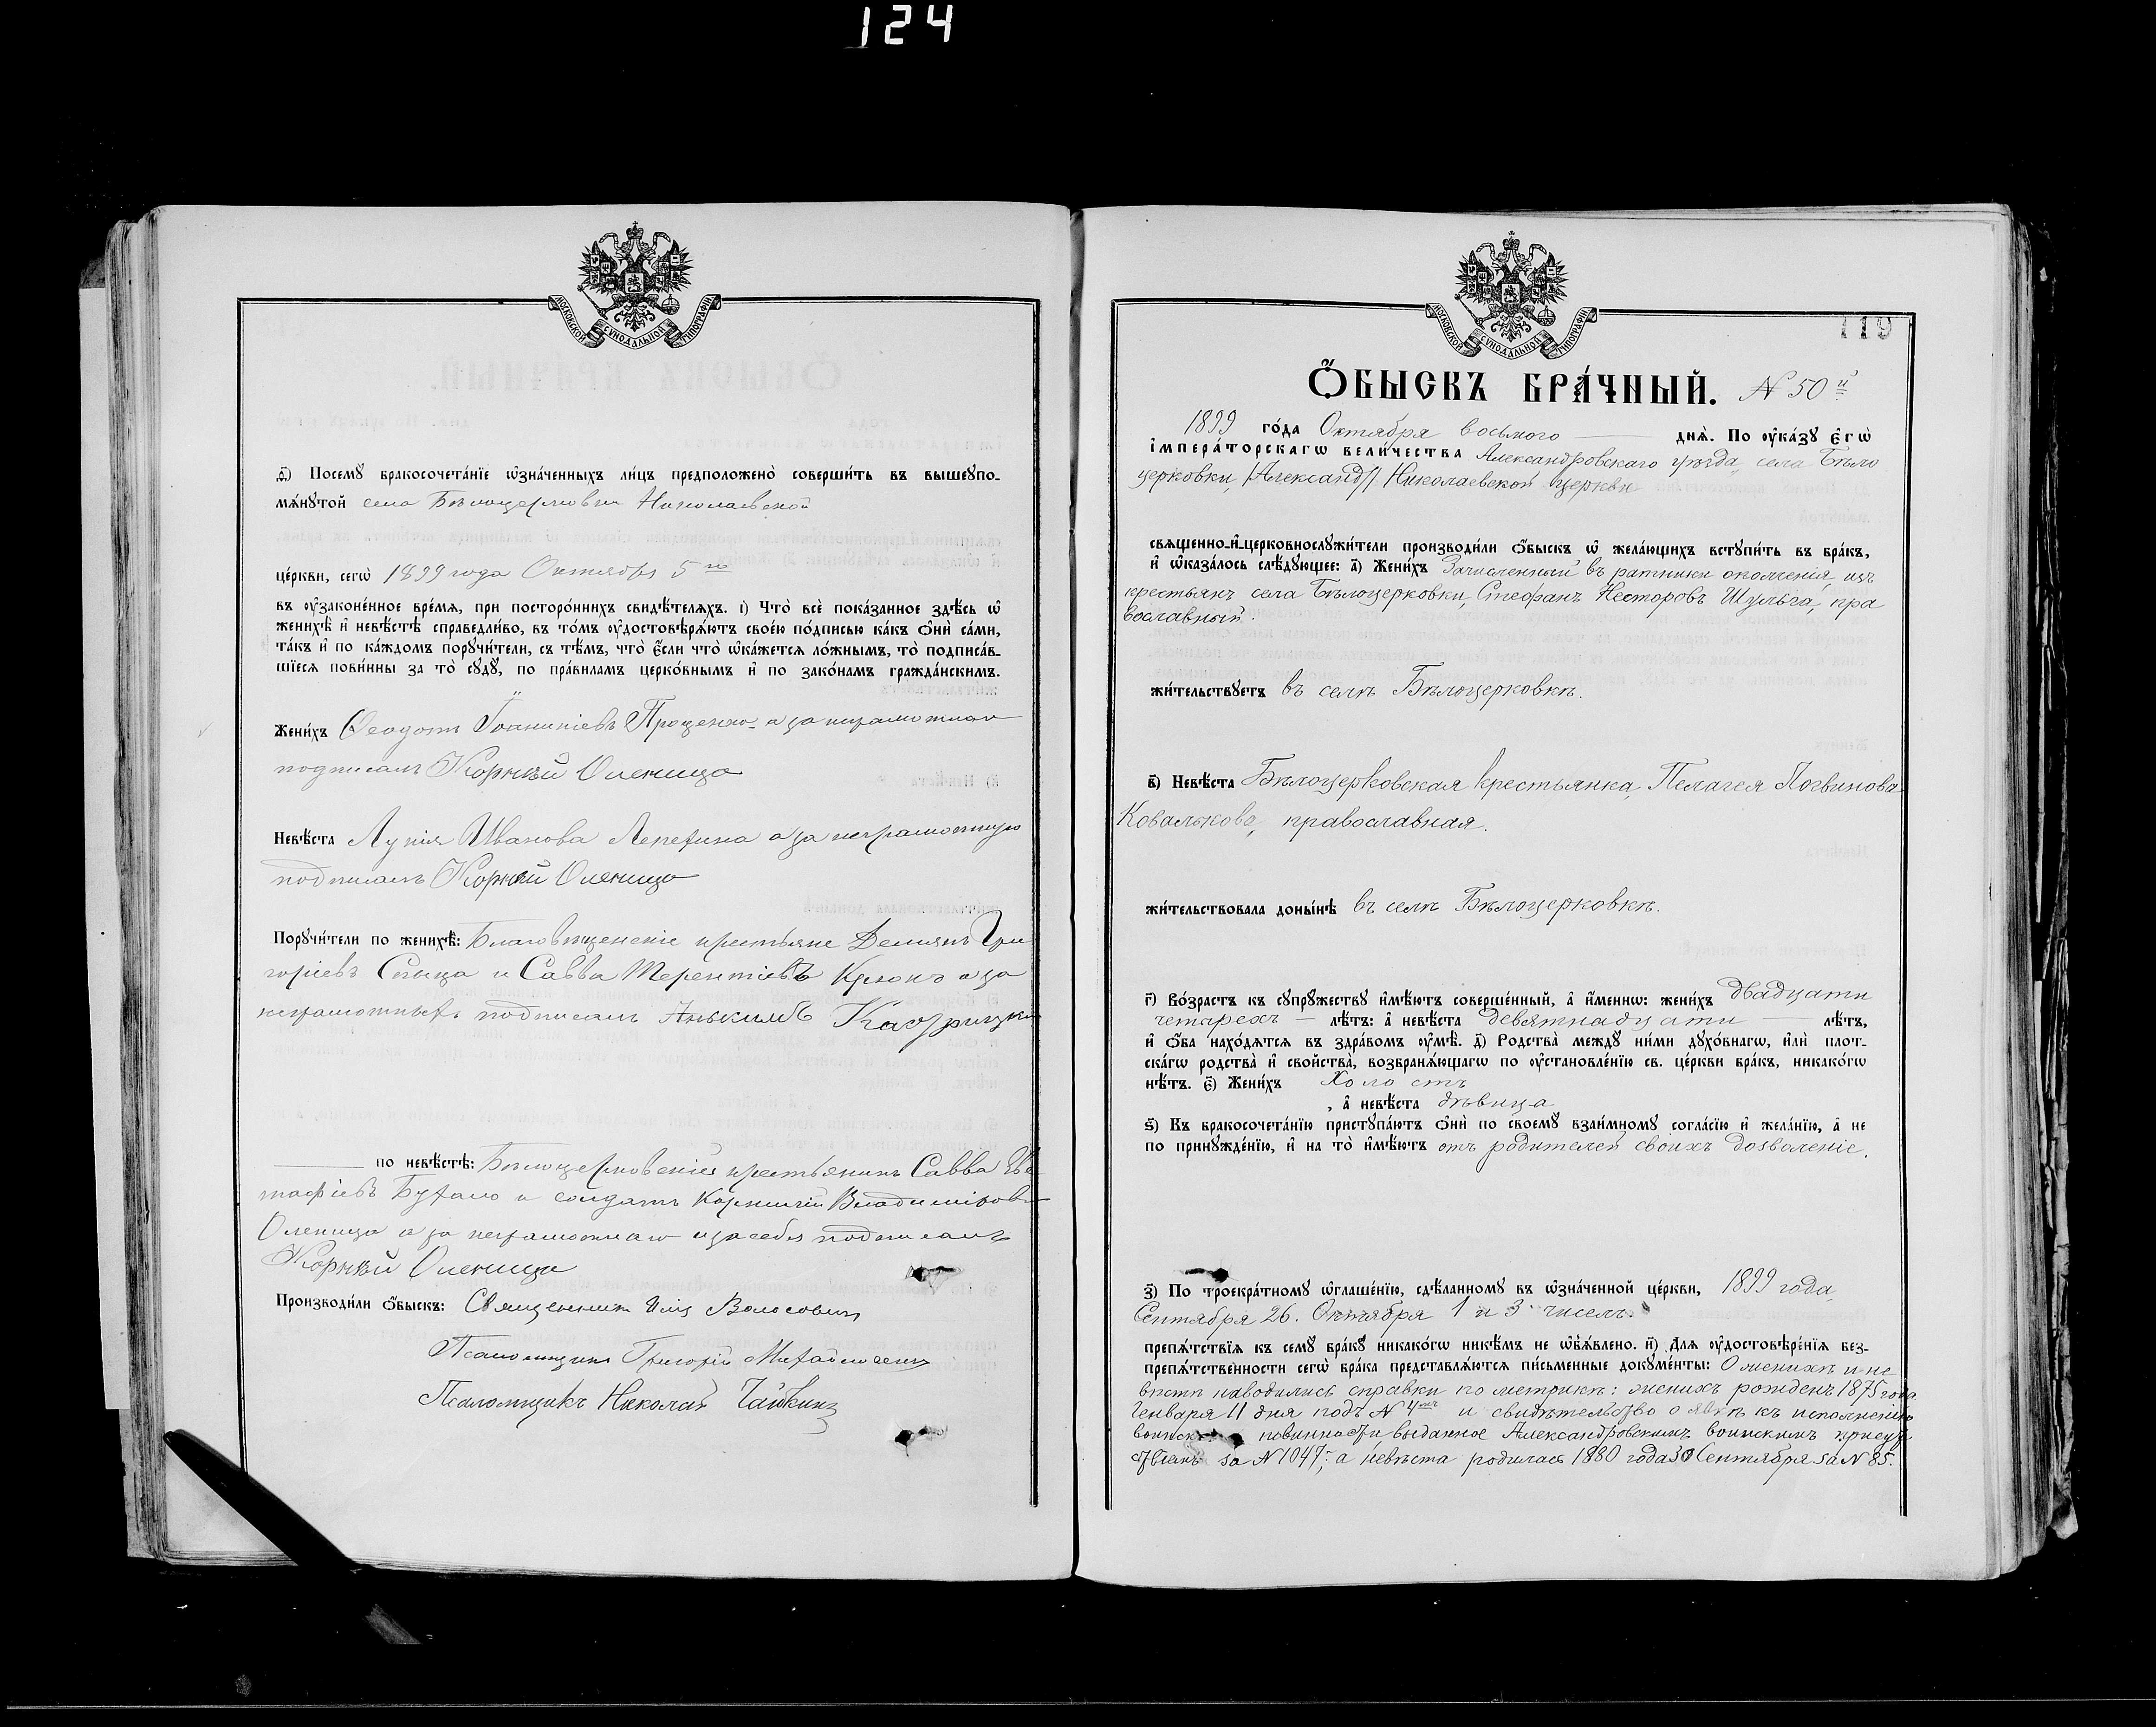 124
МОСКОВСКОЙ СУНОДАЛЬНОЙ ТИПОГРАФІИ
д҃) Посемꙋ бракосочета́нїе ѡ҆зна́ченныхъ ли́цъ предположено̀ соверши́ть въ вышеꙋпо-
мѧ́нꙋтой села Бѣлоцерковки Николаевской
це́ркви, сегѡ̀ 1899 года Октября 5го
въ ᲂу҆законе́нное вре́мѧ, при посторо́ннихъ свидѣ́телѧхъ. і҃) Что̀ всѐ пока́занное здѣ́сь ѡ҆
женихѣ̀ и҆ невѣ́стѣ справедли́во, въ то́мъ ᲂу҆достовѣрѧ́ютъ свое́ю по́дписью ка́къ ѻ҆нѝ са́ми,
та́къ и҆ по ка́ждомъ порꙋчи́тели, съ тѣ́мъ, что̀ є҆́сли что̀ ѡ҆ка́жетсѧ ло́жнымъ, то̀ подписа́в-
шїесѧ пови́нны за то̀ сꙋдꙋ̀, по пра́виламъ церко́внымъ и҆ по зако́намъ гражда́нскимъ.
Жени́хъ Ѳеодотъ Іоаникіевъ Проценко а за неграмотнаго
подписалъ Корнѣй Оленица
Невѣ́ста Лукія Иванова Лепехина а за неграмотную
подписалъ Корнѣй Оленица
Порꙋчи́тели по женихѣ̀: Благовѣщенскіе крестьяне Демьянъ Гри
горіевъ Спица и Савва Терентіевъ Крюкъ а за
неграмотныхъ подписалъ
по невѣ́стѣ: Бѣлоцерковскій крестьянинъ Савва Евс
тафіевъ Бухало и солдатъ Корнилій Владиміровъ
Оленица а за неграмотнаго и за себя подписалъ
Корнѣй Оленица
Производи́ли ѻ҆́быскъ: Священникъ Илія Волосовичъ
Псаломщикъ Григорій Михайличенко
Псаломщикъ Николай Чайкинъ
МОСКОВСКОЙ СУНОДАЛЬНОЙ ТИПОГРАФІИ
119
Ѻ҆́БЫСКЪ БРА́ЧНЫЙ. N 50й
1899 го́да Октября восьмого днѧ̀. По ᲂу҆ка́зꙋ Є҆гѡ̀
і҆мпера́торскагѡ вели́чества Александровскаго уѣзда, села Бѣло
церковки, /Александ/ Николаевской церкви
свѧщенно-и҆-церковнослꙋжи́тели производи́ли ѻ҆́быскъ ѡ҆ жела́ющихъ встꙋпи́ть въ бра́къ,
и҆ ѡ҆каза́лось слѣ́дꙋющее: а҃) Жени́хъ Зачисленный въ ратники ополченія, изъ
крестьянъ села Бѣлоцерковки, Стефанъ Несторовъ Шульга, пра
вославный.
жи́тельствꙋетъ въ селѣ Бѣлоцерковкѣ.
в҃) Невѣ́ста Бѣлоцерковская крестьянка, Пелагея Логвинова
Ковалькова, православная.
жи́тельствовала доны́нѣ въ селѣ Бѣлоцерковкѣ.
г҃) Во́зрастъ къ сꙋпрꙋ́жествꙋ и҆мѣ́ютъ соверше́нный, а҆ и҆́меннѡ: жени́хъ двадцати
четырехъ лѣ́тъ: а҆ невѣ́ста девятнадцати лѣ́тъ,
и҆ ѻ҆́ба нахо́дѧтсѧ въ здра́вомъ ᲂу҆мѣ̀. д҃) Родства̀ междꙋ̀ ни́ми дꙋхо́внагѡ, и҆лѝ плот-
ска́гѡ родства̀ и҆ свойства̀, возбранѧ́ющагѡ по ᲂу҆становле́нїю св. це́ркви бра́къ, никако́гѡ
нѣ́тъ. є҃) Жени́хъ холостъ
, а҆ невѣ́ста дѣвица
ѕ҃) Къ бракосочета́нїю пристꙋпа́ютъ ѻ҆нѝ по своемꙋ̀ взаи́мномꙋ согла́сїю и҆ жела́нїю, а҆ не
по принꙋжде́нїю, и҆ на то̀ и҆мѣ́ютъ отъ родителей своихъ дозволеніе.
з҃) По троекра́тномꙋ ѡ҆глаше́нїю, сдѣ́ланномꙋ въ ѡ҆зна́ченной це́ркви, 1899 года,
Сентября 26. Октября 1 и 3 чиселъ.
препѧ́тствїѧ къ семꙋ̀ бра́кꙋ никако́гѡ никѣ́мъ не ѡ҆б̾ѧ́влено. и҃) Длѧ ᲂу҆достовѣре́нїѧ без-
препѧ́тственности сегѡ̀ бра́ка представлѧ́ютсѧ пи́сьменные докꙋме́нты: О женихѣ и не
вѣстѣ наводились справки по метрикѣ: женихъ рожденъ 1875 года
Генваря 11 дня подъ N 4мъ и свидѣтельство о явкѣ къ исполненію
воинск повинности выданное Александровскимъ воинскимъ присут
ствіемъ за N 1047; а невѣста родилась 1880 года 30 Сентября за N 85.